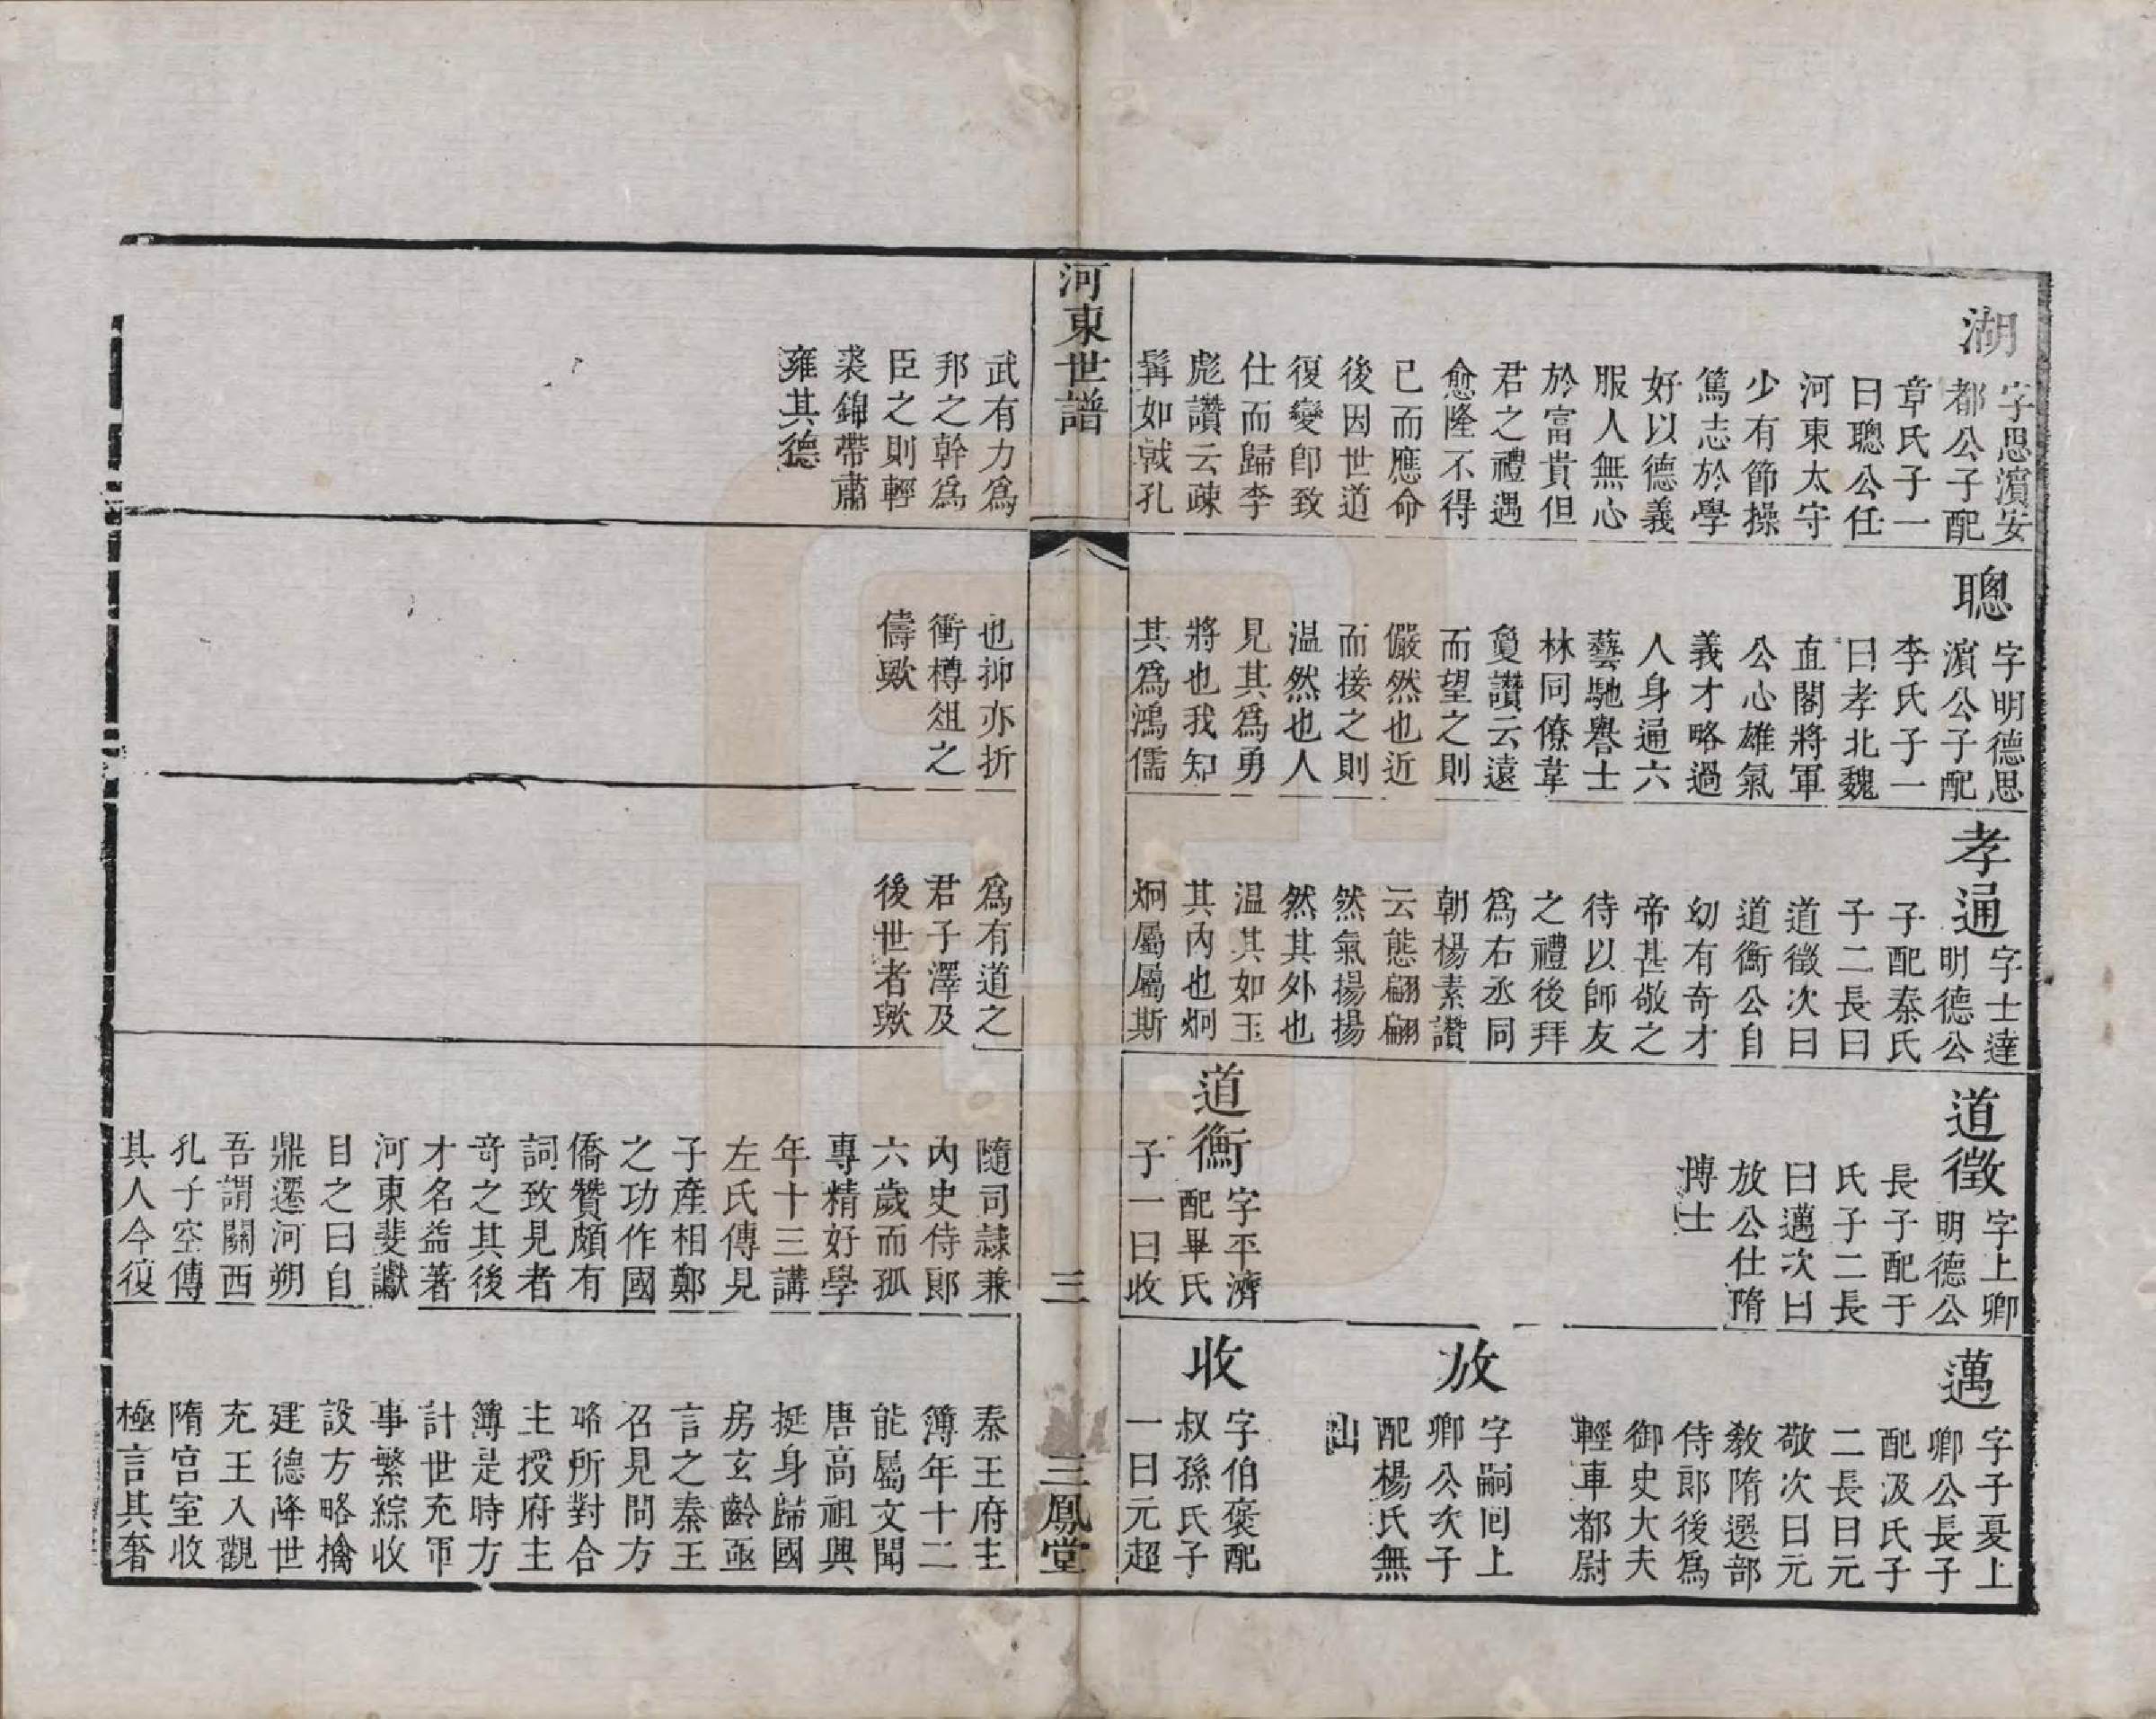 湖
字思濵安
都公子配
章氏子一
曰聰公任
河東太守
少有節操
篤志於學
好以德義
服人無心
於富貴但
君之禮遇
愈隆不得
已而應命
後因世道
復變卽致
仕而歸李
彪讚云疎
髯如戟孔
聰
字明德思
濵公子配
李氏子一
曰孝北魏
直閣將軍
公心雄氣
義才略過
人身通六
藝馳譽士
林同僚葦
夐讚云遠
而望之則
儼然也近
而接之則
温然也人
見其爲勇
將也我知
其爲鴻儒
孝通
字士達
明德公
子配秦氏
子二長曰
道徵次曰
道衡公自
幼有奇才
帝甚敬之
待以師友
之禮後拜
爲右丞同
朝楊素讚
云態翩翩
然氣揚揚
然其外也
温其如玉
其内也炯
炯屬屬斯
道徵
字上卿
明德公
長子配于
氏子二長
曰邁次曰
放公仕隋
博士
道衡
字平濟
配畢氏
子一曰收
邁
字子夏上
卿公長子
配汲氏子
二長曰元
敬次曰元
敎隋選部
侍郎後爲
御史大夫
輕車都尉
放
字嗣回上
卿公次子
配楊氏無
出
收
字伯褒配
叔孫氏子
一曰元超
河東世譜
三
三鳳堂
武有力爲
邦之幹爲
臣之則輕
裘錦帶肅
雍其德
也抑亦折
衝樽俎之
儔歟
爲有道之
君子澤及
後世者歟
隨司隷兼
内史侍郎
六歲而孤
專精好學
年十三講
左氏傳見
子產相鄭
之功作國
僑贊頗有
詞致見者
奇之其後
才名益著
河東斐讞
目之曰自
鼎遷河朔
吾謂關西
孔子空傳
其人今復
秦王府主
簿年十二
能屬文聞
唐高祖興
挺身歸國
房玄齡亟
言之秦王
召見問方
略所對合
主授府主
簿是時方
計世充軍
事繁綜收
設方略擒
建德降世
充王入觀
隋宫室收
極言其奢